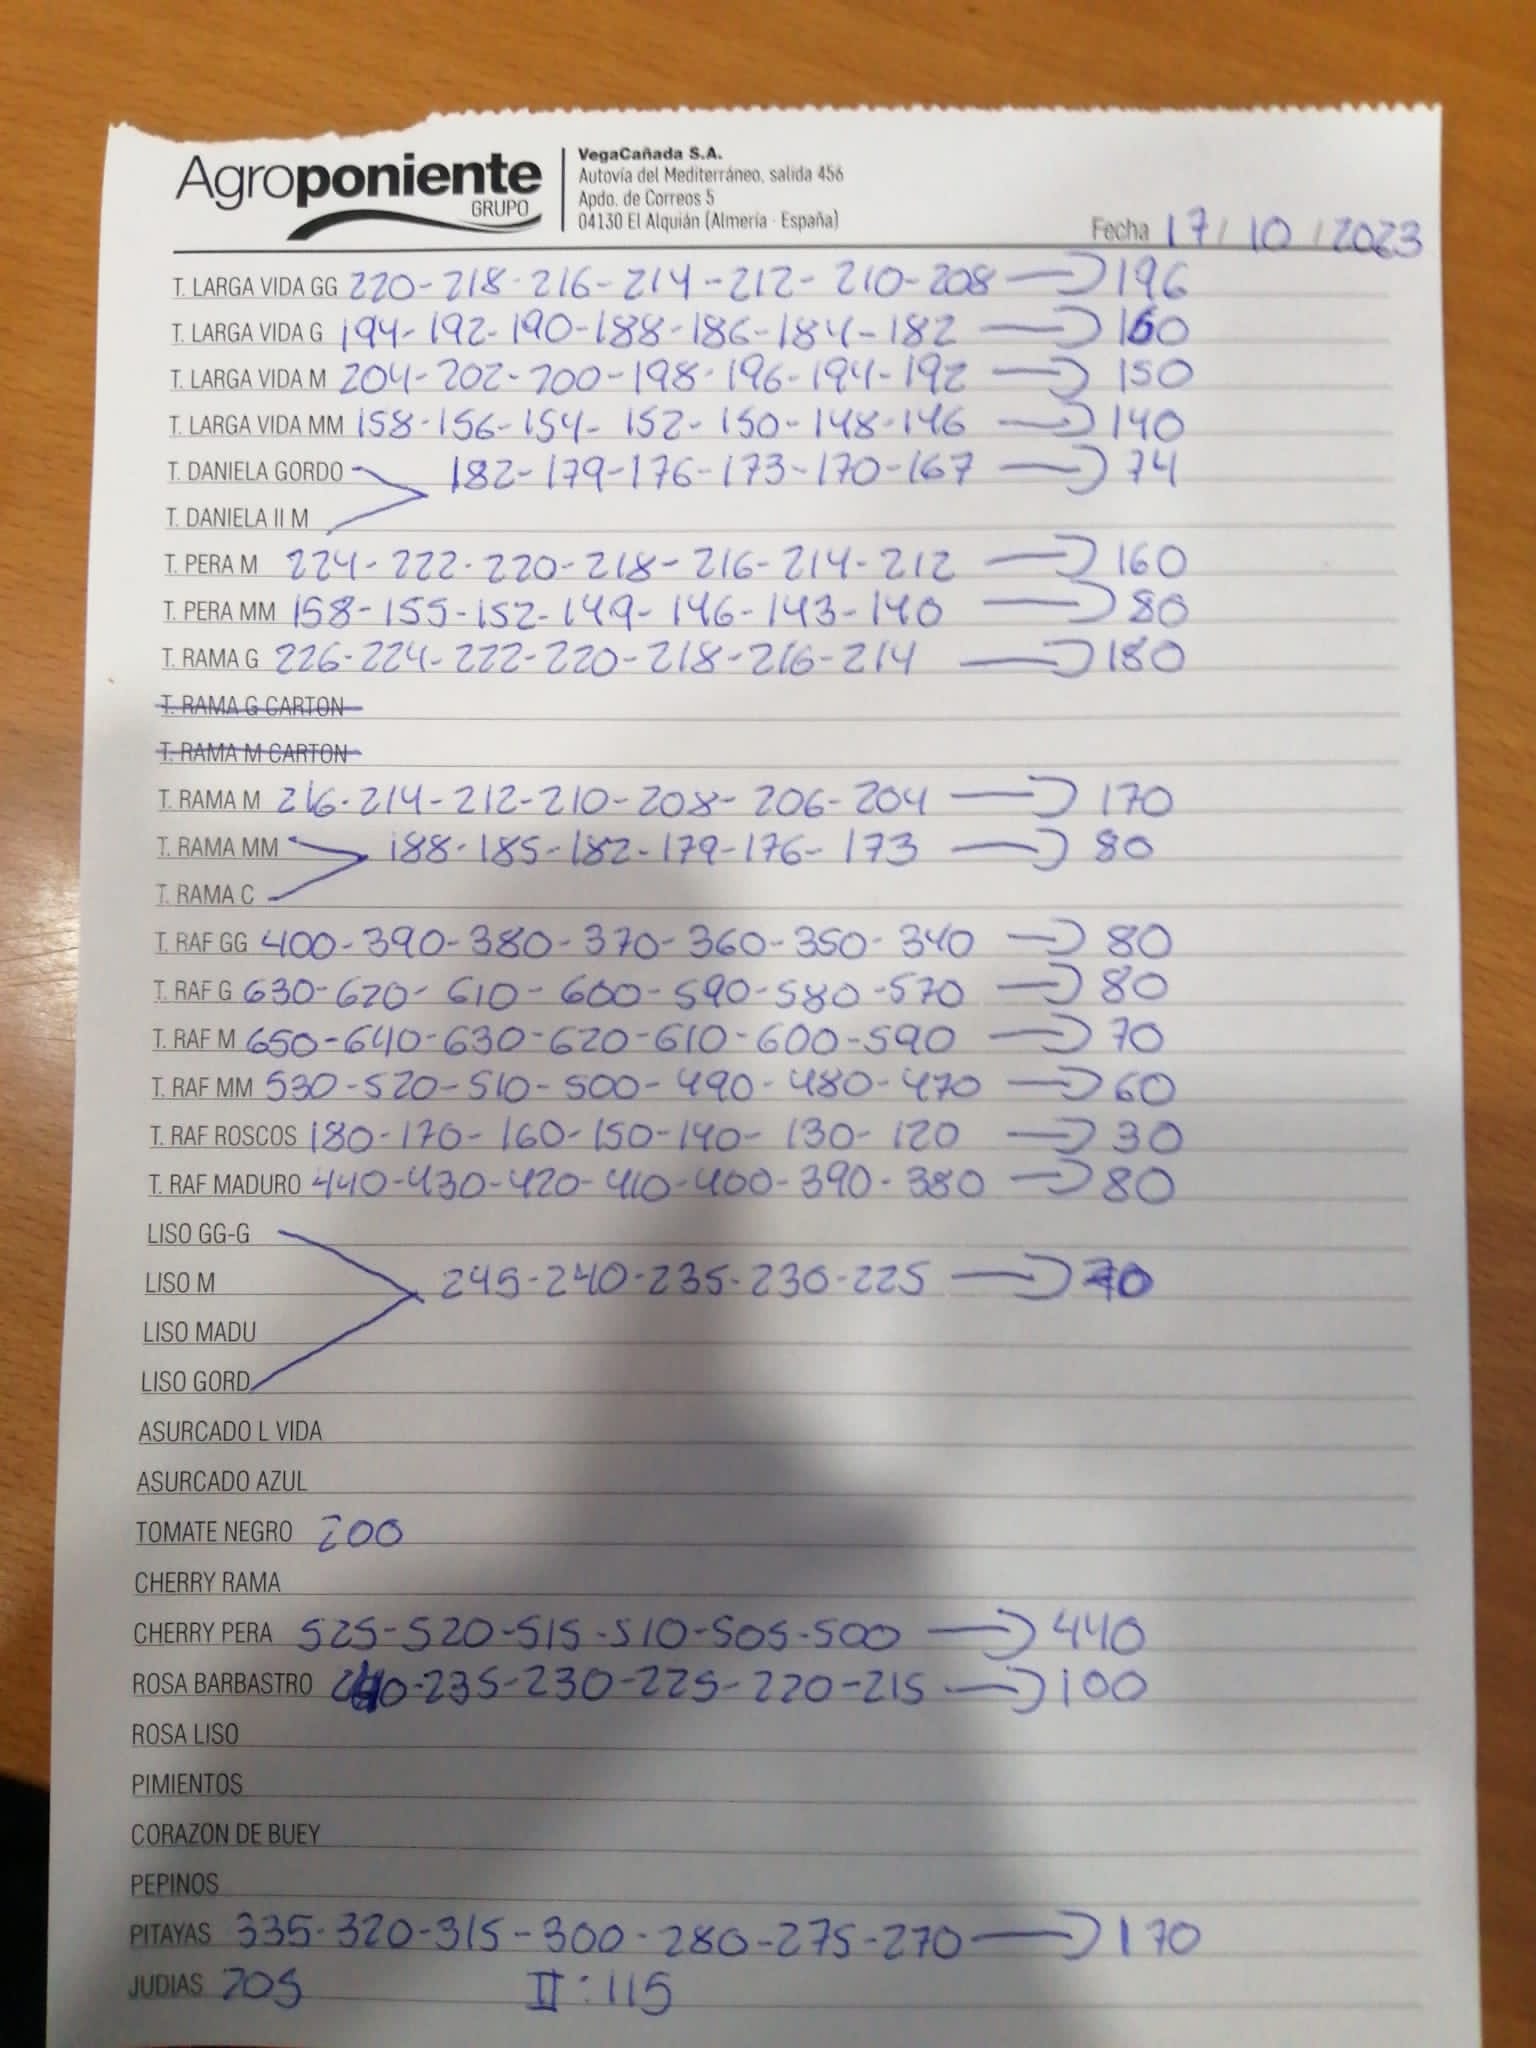 Agroponiente
GRUPO
VegaCañada S.A.
Autovía del Mediterráneo, salida 456
Apdo. de Correos 5
04130 El Alquián (Almería - España)
Fecha 17/10/2023
T. LARGA VIDA GG 220-218-216-214-212-210-208 → 196
T. LARGA VIDA G 194-192-190-188-186-184-182 → 160
T. LARGA VIDA M 204-202-200-198-196-194-192 → 150
T. LARGA VIDA MM 158-156-154-152-150-148-146 → 140
T. DANIELA GORDO 182-179-176-173-170-167 → 74
T. DANIELA II M
T. PERA M 224-222-220-218-216-214-212 → 160
T. PERA MM 158-155-152-149-146-143-140 → 80
T. RAMA G 226-224-222-220-218-216-214 → 180
T. RAMA G CARTON
T. RAMA M CARTON
T. RAMA M 216-214-212-210-208-206-204 → 170
T. RAMA MM 188-185-182-179-176-173 → 80
T. RAMA C
T. RAF GG 400-390-380-370-360-350-340 → 80
T. RAF G 630-620-610-600-590-580-570 → 80
T. RAF M 650-640-630-620-610-600-590 → 70
T. RAF MM 530-520-510-500-490-480-470 → 60
T. RAF ROSCOS 180-170-160-150-140-130-120 → 30
T. RAF MADURO 440-430-420-410-400-390-380 → 80
LISO GG-G
LISO M 245-240-235-230-225 →
LISO MADU
LISO GORD
ASURCADO L VIDA
ASURCADO AZUL
TOMATE NEGRO 200
CHERRY RAMA
CHERRY PERA 525-520-515-510-505-500 → 440
ROSA BARBASTRO 240-235-230-225-220-215 → 100
ROSA LISO
PIMIENTOS
CORAZON DE BUEY
PEPINOS
PITAYAS 335-320-315-300-280-275-270 → 170
JUDIAS 705 II: 115